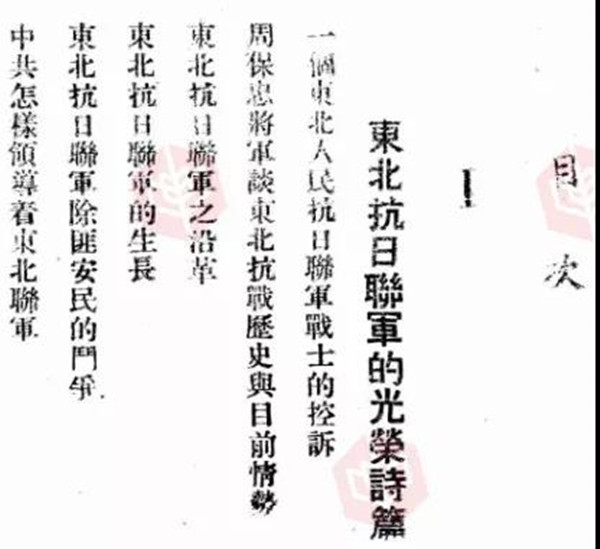 目次
I
東北抗日聯軍的光榮詩篇
一個東北人民抗日聯軍戰士的控訴
周保忠將軍談東北抗戰歷史與目前情勢
東北抗日聯軍之沿革
東北抗日聯軍的生長
東北抗日聯軍除匪安民的鬥爭
中共怎樣領導着東北聯軍